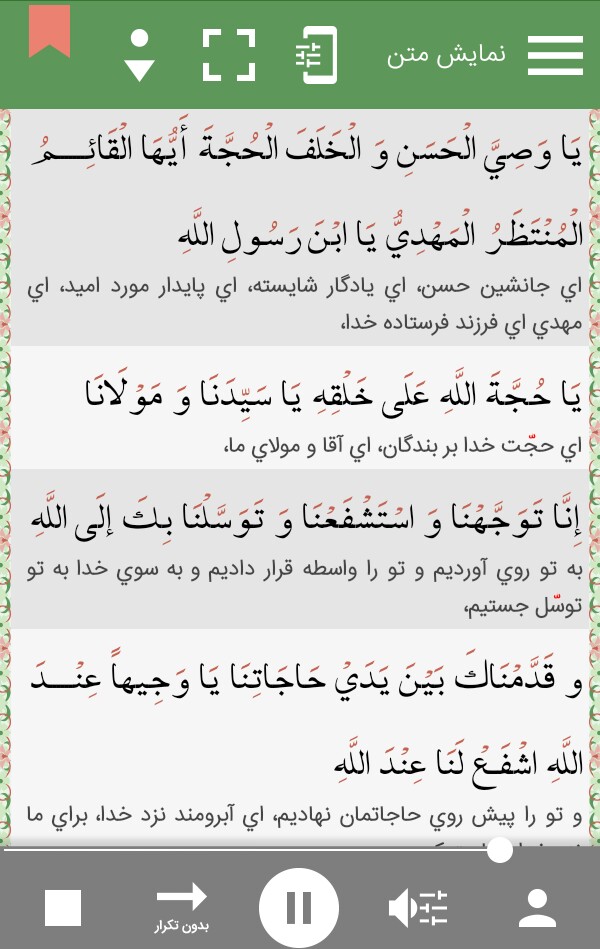 نمایش متن
يَا وَصِيَّ الْحَسَنِ وَ الْخَلَفَ الْحُجَّةَ أَيُّهَا الْقَائِـــمُ
الْمُنْتَظَرُ الْمَهْدِيُّ يَا ابْنَ رَسُولِ اللَّهِ
اي جانشين حسن، اي يادگار شايسته، اي پايدار مورد اميد، اي
مهدي اي فرزند فرستاده خدا،
يَا حُجَّةَ اللَّهِ عَلَى خَلْقِهِ يَا سَيِّدَنَا وَ مَوْلَانَا
اي حجّت خدا بر بندگان، اي آقا و مولاي ما،
إِنَّا تَوَجَّهْنَا وَ اسْتَشْفَعْنَا وَ تَوَسَّلْنَا بِكَ إِلَى اللَّهِ
به تو روي آورديم و تو را واسطه قرار داديم و به سوي خدا به تو
توسّل جستيم،
و قَدَّمْنَاكَ بَيْنَ يَدَيْ حَاجَاتِنَا يَا وَجِيهاً عِنْـــدَ
اللَّهِ اشْفَعْ لَنَا عِنْدَ اللَّهِ
و تو را پيش روي حاجاتمان نهاديم، اي آبرومند نزد خدا، براي ما
بدون تکرار